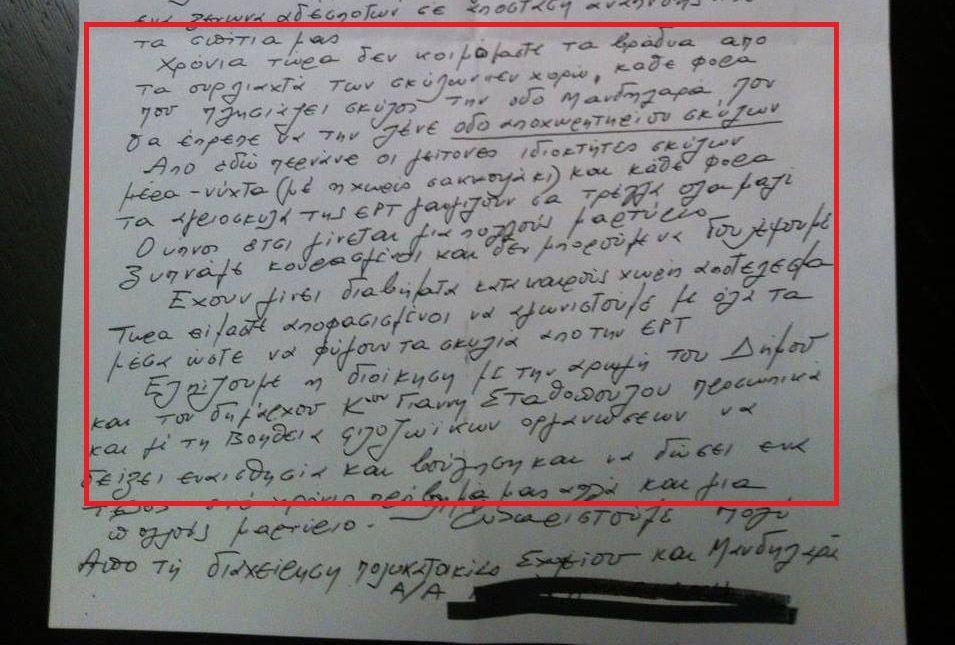 ενα ξενώνα αδέσποτων σε απόσταση αναπνοής
τα σπίτια μας
Χρόνια τώρα δεν κοιμόμαστε τα βράδυα απο
τα ουρλιαχτά των σκύλων εν χορώ, κάθε φορα
που πλησιάζει σκύλος την οδο Μανδηλαρά που
θα έπρεπε να την λένε οδο αποχωρητηρίου σκύλων
Απο εδώ περνάνε οι γείτονες ιδιοκτήτες σκύλων
μέρα - νύχτα (με η χωρίς σακκουλάκι) και κάθε φορα
τα αγριοσκυλα της ΕΡΤ γαυγιζουν σα τρελλα ολα μαζι
Ο υπνος ετσι γίνεται για πολλούς μαρτύριο
Ξυπνάμε κουρασμένοι και δεν μπορούμε να δουλέψουμε
Εχουν γίνει διαβήματα κατα καιρούς χωρίς αποτελεσμα
Τωρα είμαστε αποφασισμένοι να αγωνιστούμε με όλα τα
μέσα ώστε να φύγουν τα σκυλια απο την ΕΡΤ
Ελπίζουμε η διοίκηση με την αρωγή του Δήμου
και του δημάρχου Κου Γιαννη Σταθοπουλου προσωπικα
και με τη Βοηθεια φιλοζωϊκων οργανωσεων να
δείξει ευαισθησία και βούληση και να δώσει ενα
τελος στο χρόνιο πρόβλημά μας αλλά και για
πολλούς μαρτύριο. Ευχαριστούμε πολύ
Απο τη διαχείρηση πολυκατοικίας και Μανδηλαρά
Α/Α